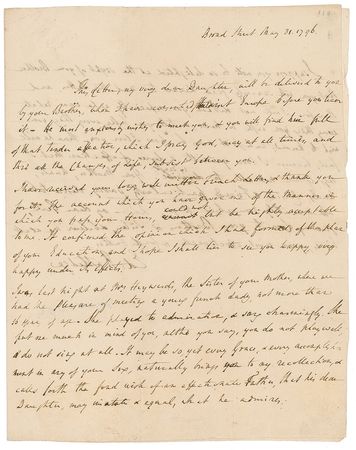 Broad Street May 31. 1796.
This letter, my very dear Daughter, will be delivered to you
by your Brother, whom I have
Europe before you leave
it — He most anxiously wishes to meet you, & you will find him full
of that tender affection, which I pray God, may at all times, and
thro' all the Changes of Life, subsist between you.
I have received your long well written French Letter, & thank you
for it. The account which you have given me of the manner in
which you pass your Hours, could not but be highly acceptable
to me. It confirmed the opinion which I had formed of the place
of your Education, and I hope I shall live to see you happy, very
happy under its effects.
I was last night at Mrs Heywards, the Sister of your Mother, where we
had the Pleasure of meeting a young french Lady, not more than
years of age. She played to admiration, & sang charmingly. She
put me much in mind of you, altho you say, you do not play well
& do not sing at all. It may be so yet every Grace, & every accomplish
ment in any of your Sex, naturally brings you to my recollection, &
calls forth the fond wish of an affectionate Father, that his dear
Daughter, may imitate & equal, what he admires.